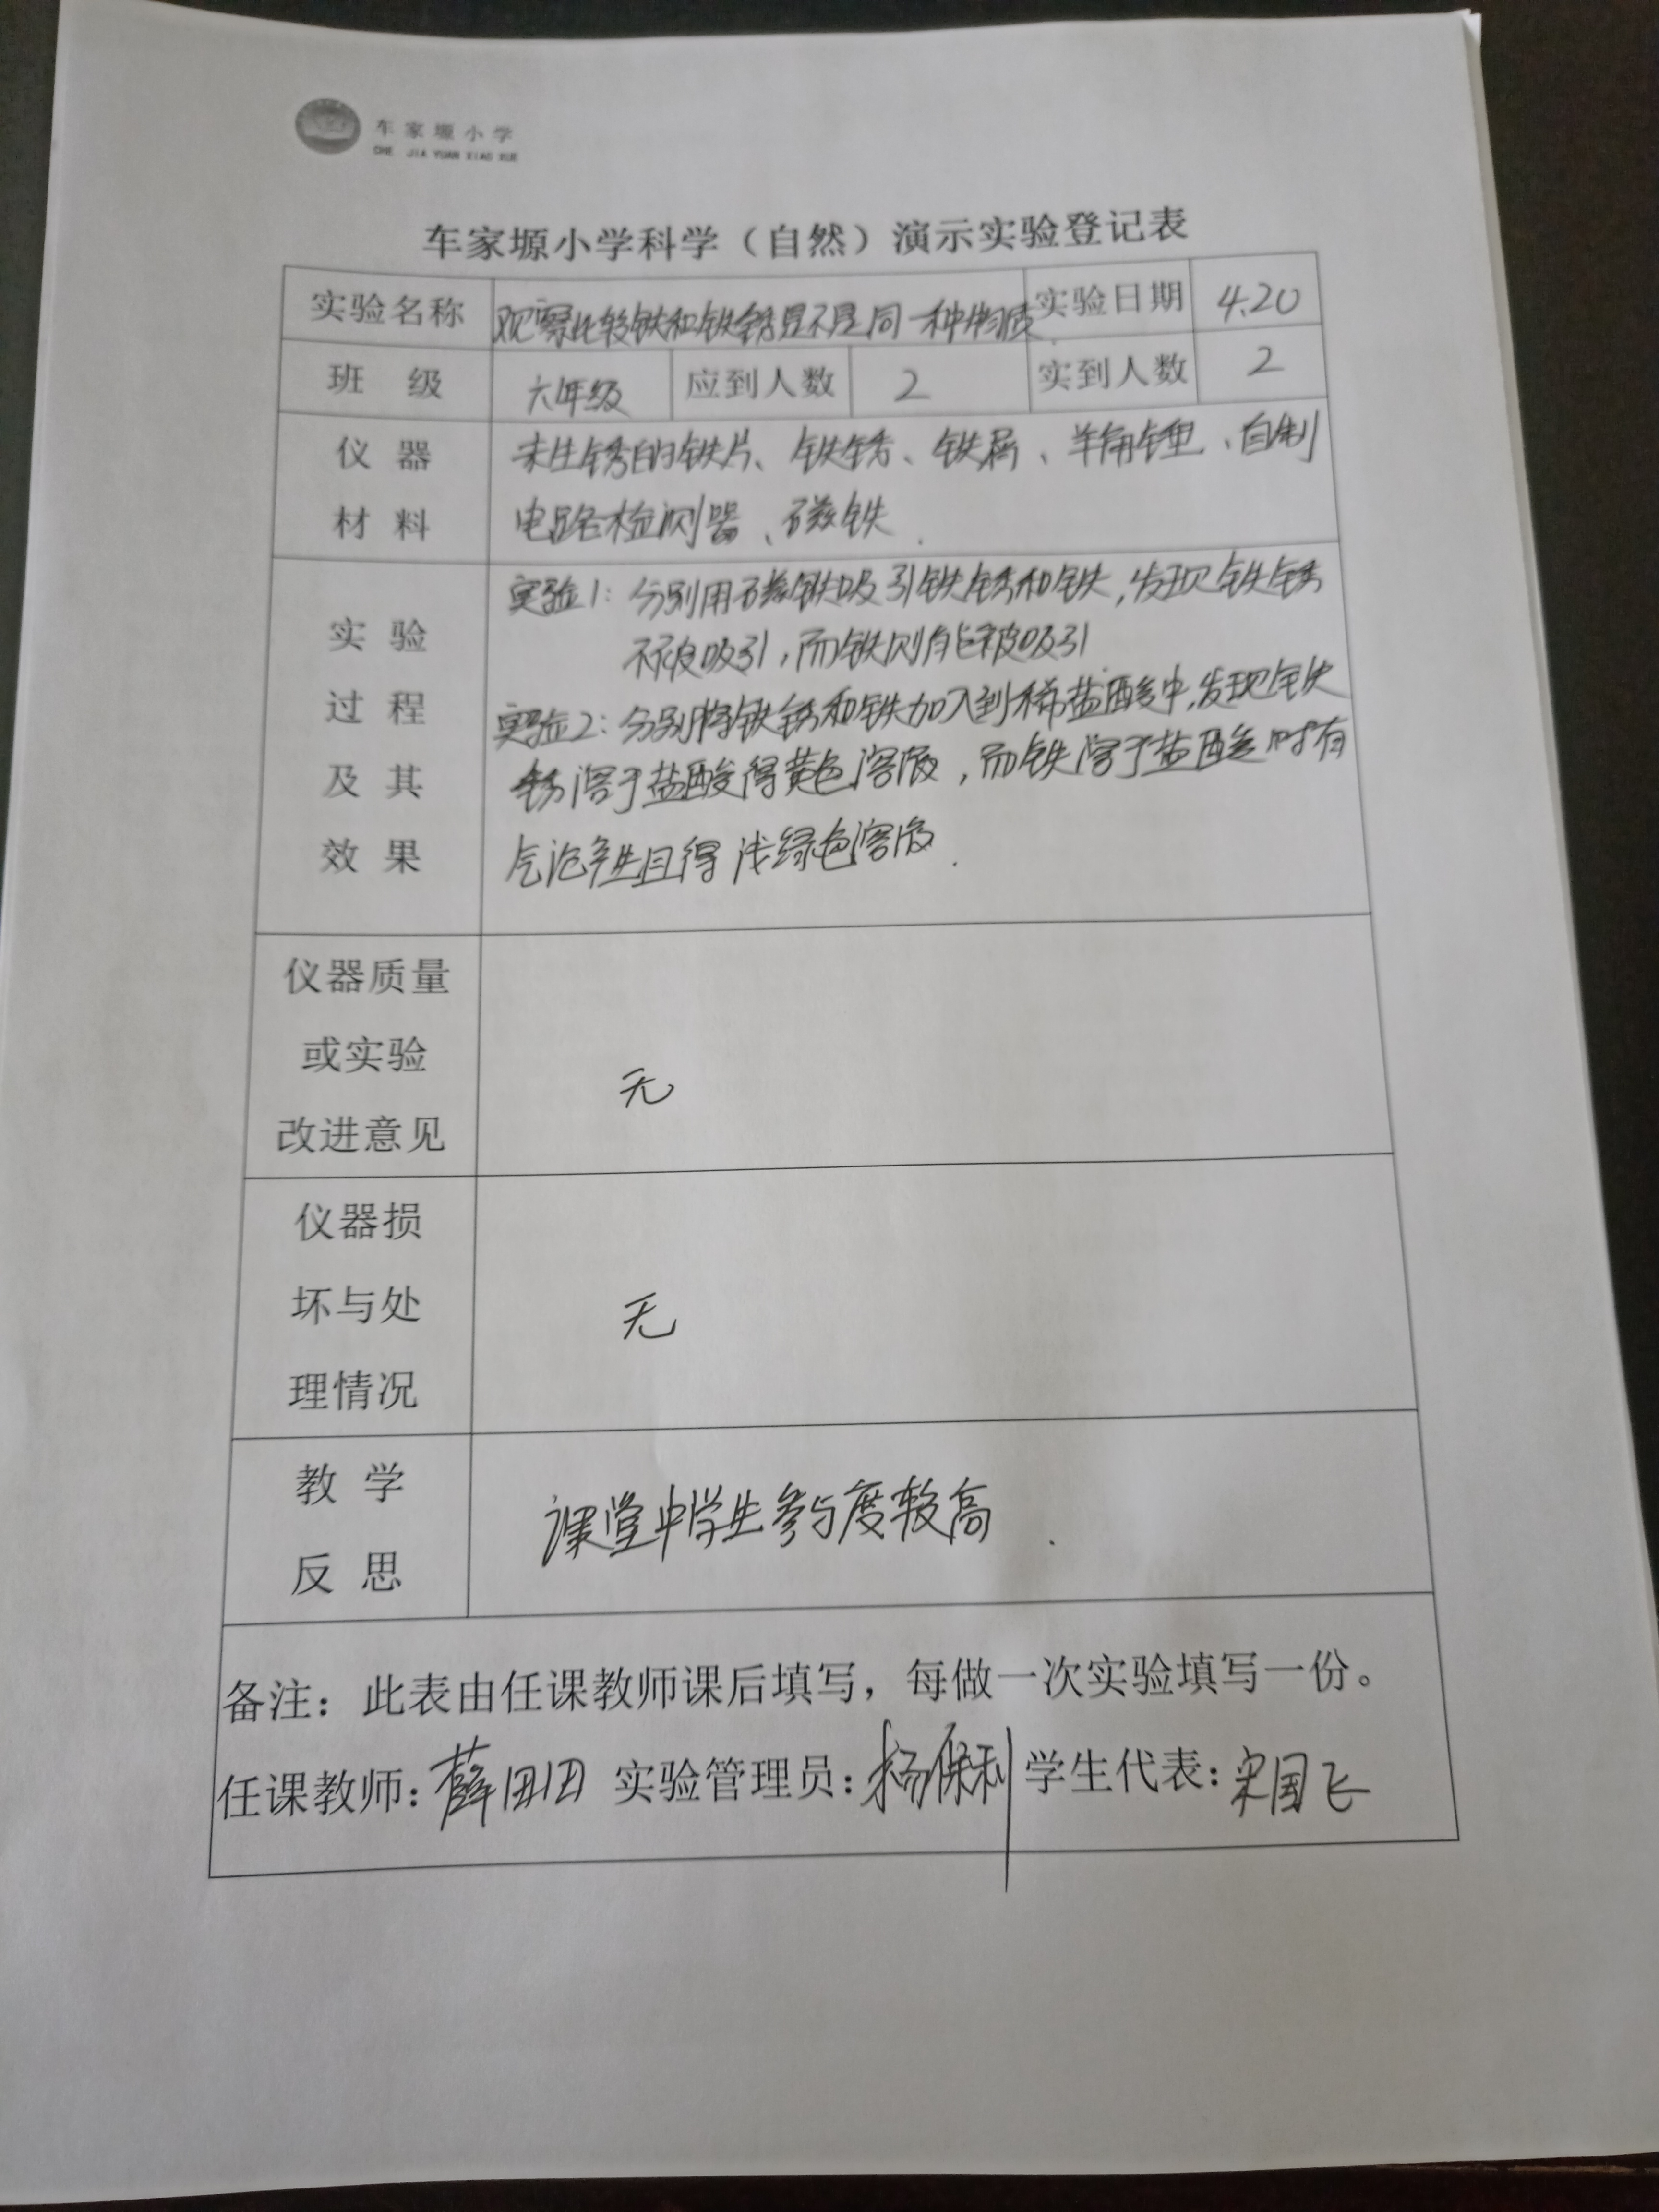 车家塬小学
CHE JIA YUAN XIAO XUE
车家塬小学科学（自然）演示实验登记表
实验名称 观察比较铁和铁锈是不是同一种物质. 实验日期 4.20
班 级 六年级 应到人数 2 实到人数 2
仪 器 未生锈的铁片、铁锈、铁屑、羊角锤、自制
材 料 电路检测器、磁铁.
实验1：分别用磁铁吸引铁锈和铁，发现铁锈
实 验 不被吸引，而铁则能被吸引
过 程 实验2：分别将铁锈和铁加入到稀盐酸中，发现铁
及 其 锈溶于盐酸得黄色溶液，而铁溶于盐酸时有
效 果 气泡产生且得浅绿色溶液.
仪器质量
或实验 无
改进意见
仪器损
坏与处 无
理情况
教 学 课堂中学生参与度较高.
反 思
备注：此表由任课教师课后填写，每做一次实验填写一份。
任课教师：薛田田 实验管理员：杨保利 学生代表：宋国飞